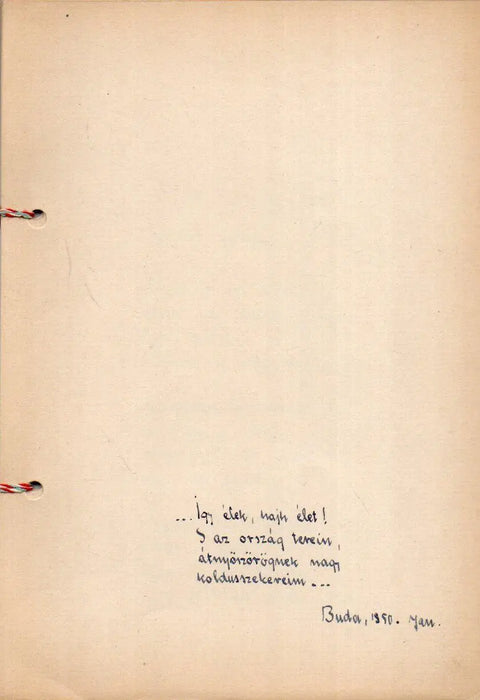 ... Így élek, hajh élet!
S az ország terein,
átnyöszörögnek nagy
koldusszekereim ...
Buda, 1950. Jan.